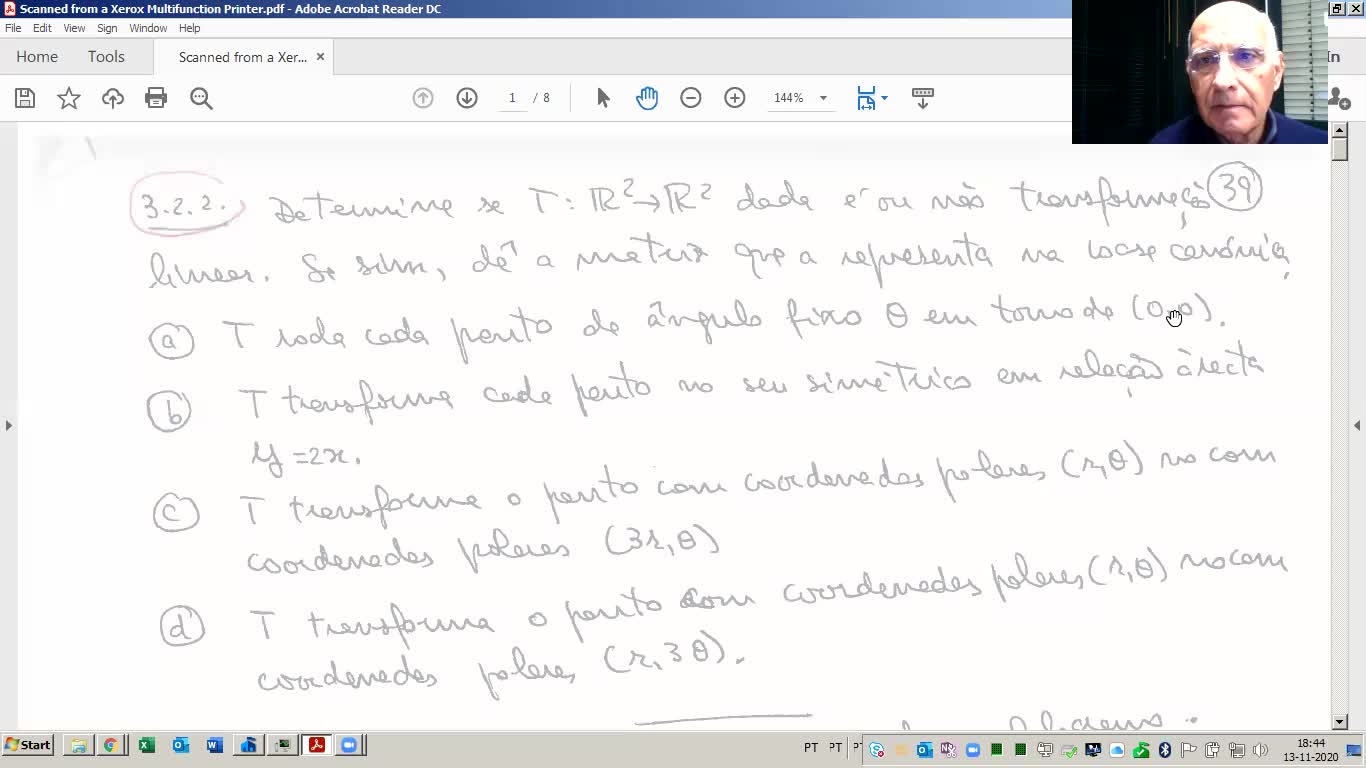 Scanned from a Xerox Multifunction Printer.pdf - Adobe Acrobat Reader DC
File Edit View Sign Window Help
Home Tools Scanned from a Xer... ×
1 / 8 144% In
3.2.2. Determine se T: ℝ²→ℝ² dada é ou não transformação 39
linear. Se sim, dê a matriz que a representa na base canónica.
a T roda cada ponto de ângulo fixo θ em torno de (0,0).
b T transforma cada ponto no seu simétrico em relação à recta
y=2x.
c T transforma o ponto com coordenadas polares (r,θ) no com
coordenadas polares (3r,θ)
d T transforma o ponto com coordenadas polares (r,θ) no com
coordenadas polares (r,3θ).
Start PT PT 18:44
13-11-2020